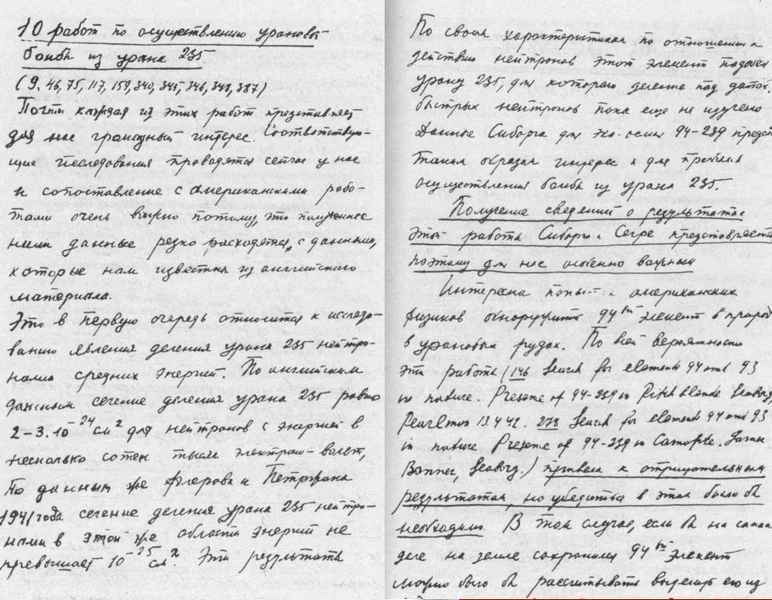 10 работ по осуществлению урановой
бомбы из урана 235
(9, 46, 75, 117, 159, 340, 345, 346, 348, 387)
Почти каждая из этих работ представляет
для нас громадный интерес. Соответствую-
щие исследования проводятся сейчас у нас
и сопоставление с американскими рабо-
тами очень важно потому, что полученное
нами данные резко расходятся с данными,
которые нам известны из английского
материала.
Это в первую очередь относится к исследо-
ванию явления деления урана 235 нейтро-
нами средних энергий. По английским
данным сечение деления урана 235 равно
2-3.10⁻²⁴ см² для нейтронов с энергией в
несколько сотен тысяч электрон-вольт,
По данным же Флерова и Петржака
1941 года сечение деления урана 235 нейтро-
нами в этой же области энергий не
превышает 10⁻²⁵ см². Эти результаты
По своим характеристикам по отношению к
действию нейтронов этот элемент подобен
урану 235, для которого деление под
быстрых нейтронов пока еще не изучено
Данные Сиборга для эка-осмия 94-239
таким образом интерес и для проблемы
осуществления бомбы из урана 235.
Получение сведений о результатах
этой работы Сиборга и Сегре представляется
поэтому для нас особенно важным
Интересна попытка американских
физиков обнаружить 94ый элемент в природе
в урановых рудах. По всей вероятности
эти работы (146 Search for elements 94 and 93
in nature. Presence of 94-239 in Pitchblende Seaborg
Pearlman 13 4 42. 273 Search for elements 94 and 93
in nature Presence of 94-239 in
Seaborg.) привели к отрицательным
результатам, но убедиться в этом было бы
необходимо. В том случае, если бы на самом
деле на земле сохранился 94ый элемент
можно было бы рассчитывать выделить его из